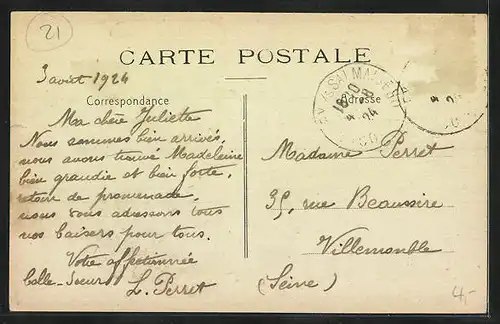 21
CARTE POSTALE
3 aout 1924
Correspondance
Adresse
Ma chère Juliette
Nous sommes bien arrivés,
nous avons trouvé Madeleine
bien grandie et bien forte,
de promenade,
nous vous adressons tous
nos baisers pour tous.
Votre affetionnée
belle-soeur L. Perret
Madame Perret
35, rue Beaussire
Villemomble
(Seine)
4,-